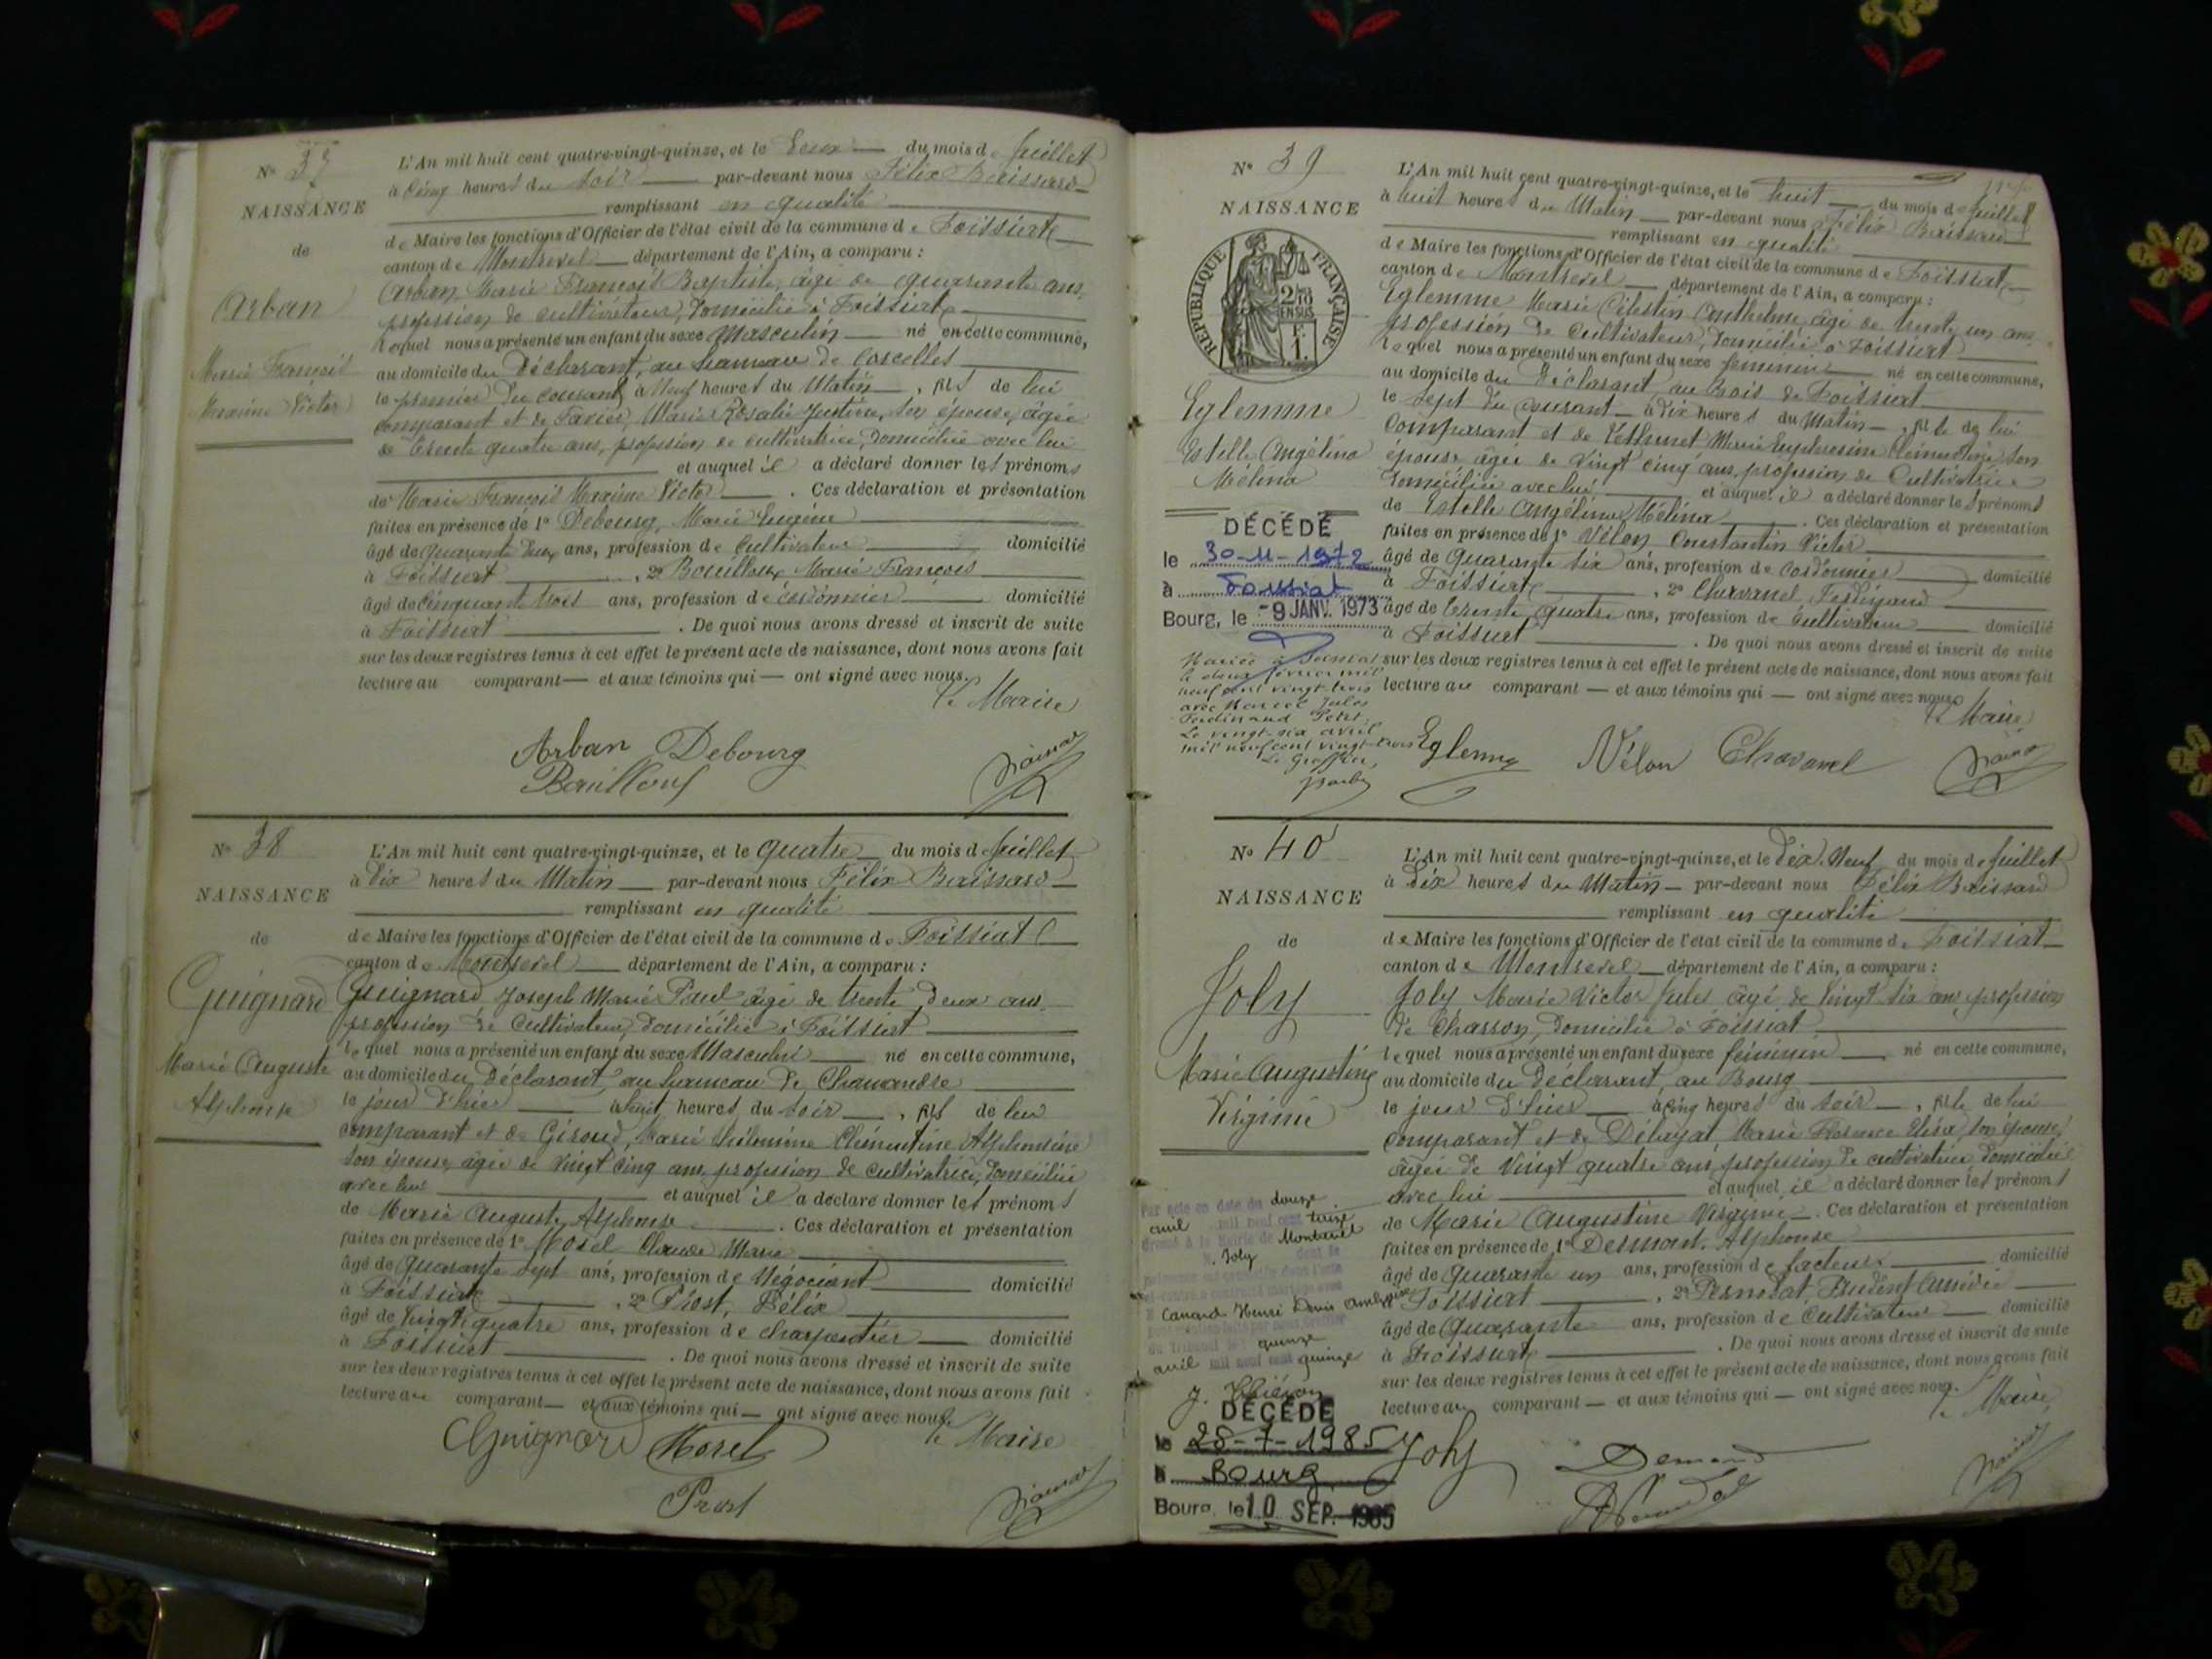 N° 37
NAISSANCE
de
Arban
Marie François
Maxime Victor
L'An mil huit cent quatre-vingt-quinze, et le Deux du mois de Juillet
à Cinq heures du Soir par-devant nous Félix
remplissant en qualité
de Maire les fonctions d'Officier de l'état civil de la commune de Foissiat
canton de Montrevel département de l'Ain, a comparu :
Arban, Marie François Baptiste, âgé de quarante ans,
profession de cultivateur, domicilié à Foissiat
lequel nous a présenté un enfant du sexe Masculin né en cette commune,
au domicile du Déclarant, au hameau de Corcelles
le premier du courant à Neuf heures du Matin, fils de lui
comparant et de Marie Rosalie Justine, son épouse, âgée
de trente quatre ans, profession de cultivatrice, domiciliée avec lui
et auquel il a déclaré donner les prénoms
de Marie François Maxime Victor. Ces déclaration et présentation
faites en présence de 1° Debourg, Marie Eugène
âgé de quarante deux ans, profession de Cultivateur domicilié
à Foissiat, 2° Bouilloux Marie François
âgé de Cinquante trois ans, profession de cordonnier domicilié
à Foissiat. De quoi nous avons dressé et inscrit de suite
sur les deux registres tenus à cet effet le présent acte de naissance, dont nous avons fait
lecture au comparant et aux témoins qui ont signé avec nous.
Le Maire
Arban Debourg
Bouilloux
N° 38
NAISSANCE
de
Guignard
Marie Auguste
Alphonse
L'An mil huit cent quatre-vingt-quinze, et le Quatre du mois de Juillet
à Dix heures du Matin par-devant nous Félix
remplissant en qualité
de Maire les fonctions d'Officier de l'état civil de la commune de Foissiat
canton de Montrevel département de l'Ain, a comparu :
Guignard Joseph Marie Paul âgé de trente deux ans
profession de Cultivateur, domicilié à Foissiat
lequel nous a présenté un enfant du sexe Masculin né en cette commune,
au domicile du Déclarant, au hameau de
le jour d'hier à huit heures du Soir, fils de lui
comparant et de Giroud, Marie Philomène Clémentine Alphonsine
son épouse, âgée de vingt cinq ans, profession de cultivatrice, domiciliée
avec lui et auquel il a déclaré donner les prénoms
de Marie Auguste Alphonse. Ces déclaration et présentation
faites en présence de 1° Morel Claude Marie
âgé de Quarante sept ans, profession de Négociant domicilié
à Foissiat, 2° Prost, Félix
âgé de Vingt quatre ans, profession de charpentier domicilié
à Foissiat. De quoi nous avons dressé et inscrit de suite
sur les deux registres tenus à cet effet le présent acte de naissance, dont nous avons fait
lecture au comparant et aux témoins qui ont signé avec nous.
Le Maire
Guignard Morel
Prost
N° 39
NAISSANCE
RÉPUBLIQUE FRANÇAISE
2/10 EN SUS
F. 1.
Eglemme
Estelle Angélina
Mélina
DÉCÉDÉ
le 30-11-1972
à Foissiat
Bourg, le -9 JANV. 1973
Mariée à
le deux février mil
neuf cent vingt-trois
avec Marcel Jules
Ferdinand Petit.
Le vingt-six avril
mil neuf cent vingt-trois
Le Greffier,
L'An mil huit cent quatre-vingt-quinze, et le huit du mois de Juillet
à huit heures du Matin par-devant nous Félix
remplissant en qualité
de Maire les fonctions d'Officier de l'état civil de la commune de Foissiat
canton de Montrevel département de l'Ain, a comparu :
Eglemme Marie Célestin Anthelme, âgé de trente un ans
profession de Cultivateur, domicilié à Foissiat
lequel nous a présenté un enfant du sexe féminin né en cette commune,
au domicile du Déclarant, au Bois de Foissiat
le Sept du courant à dix heures du Matin, fille de lui
comparant et de Marie son
épouse âgée de Vingt cinq ans, profession de Cultivatrice
domiciliée avec lui et auquel il a déclaré donner les prénoms
de Estelle Angélina Mélina. Ces déclaration et présentation
faites en présence de 1° Vélon Constantin Victor
âgé de Quarante six ans, profession de Cordonnier domicilié
à Foissiat, 2° Chavanel Ferdinand
âgé de trente quatre ans, profession de Cultivateur domicilié
à Foissiat. De quoi nous avons dressé et inscrit de suite
sur les deux registres tenus à cet effet le présent acte de naissance, dont nous avons fait
lecture au comparant et aux témoins qui ont signé avec nous
Le Maire
Eglemme Vélon Chavanel
N° 40
NAISSANCE
de
Joly
Marie Augustine
Virginie
Par acte en date du douze
avril mil neuf cent treize
dressé à la Mairie de Montrevel
Joly dont la
Canard Henri Denis Ambroise
quinze
avril mil neuf cent quinze
DÉCÉDÉ
le 28-7-1985
à Bourg
Bourg, le 10 SEP. 1985
L'An mil huit cent quatre-vingt-quinze, et le Dix Neuf du mois de Juillet
à Dix heures du Matin par-devant nous Félix
remplissant en qualité
de Maire les fonctions d'Officier de l'état civil de la commune de Foissiat
canton de Montrevel département de l'Ain, a comparu :
Joly Marie Victor Jules âgé de Vingt six ans, profession
de Charron, domicilié à Foissiat
lequel nous a présenté un enfant du sexe féminin né en cette commune,
au domicile du Déclarant, au Bourg
le jour d'hier à cinq heures du Soir, fille de lui
comparant et de Marie son épouse,
âgée de Vingt quatre ans, profession de cultivatrice domiciliée
avec lui et auquel il a déclaré donner les prénoms
de Marie Augustine Virginie. Ces déclaration et présentation
faites en présence de 1° Alphonse
âgé de Quarante un ans, profession de facteur domicilié
à Foissiat, 2° Pernodat, Prudent Amédée
âgé de Quarante ans, profession de Cultivateur domicilié
à Foissiat. De quoi nous avons dressé et inscrit de suite
sur les deux registres tenus à cet effet le présent acte de naissance, dont nous avons fait
lecture au comparant et aux témoins qui ont signé avec nous.
Le Maire
Joly